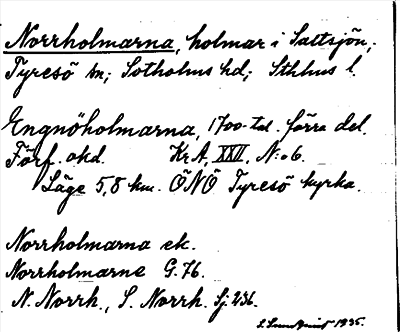 Norrholmarna, holmar i Saltsjön,
Tyresö sn; Sotholms hd; Sthlms l.
Engnöholmarna, 1700-tal. förra del.
Förf. okd. KrA, XXII, N:o 6.
Läge 5,8 km. ÖNÖ Tyresö kyrka.
Norrholmarna ek.
Norrholmarne G. 76.
N. Norrh., S. Norrh. Sj. 236.
1935.